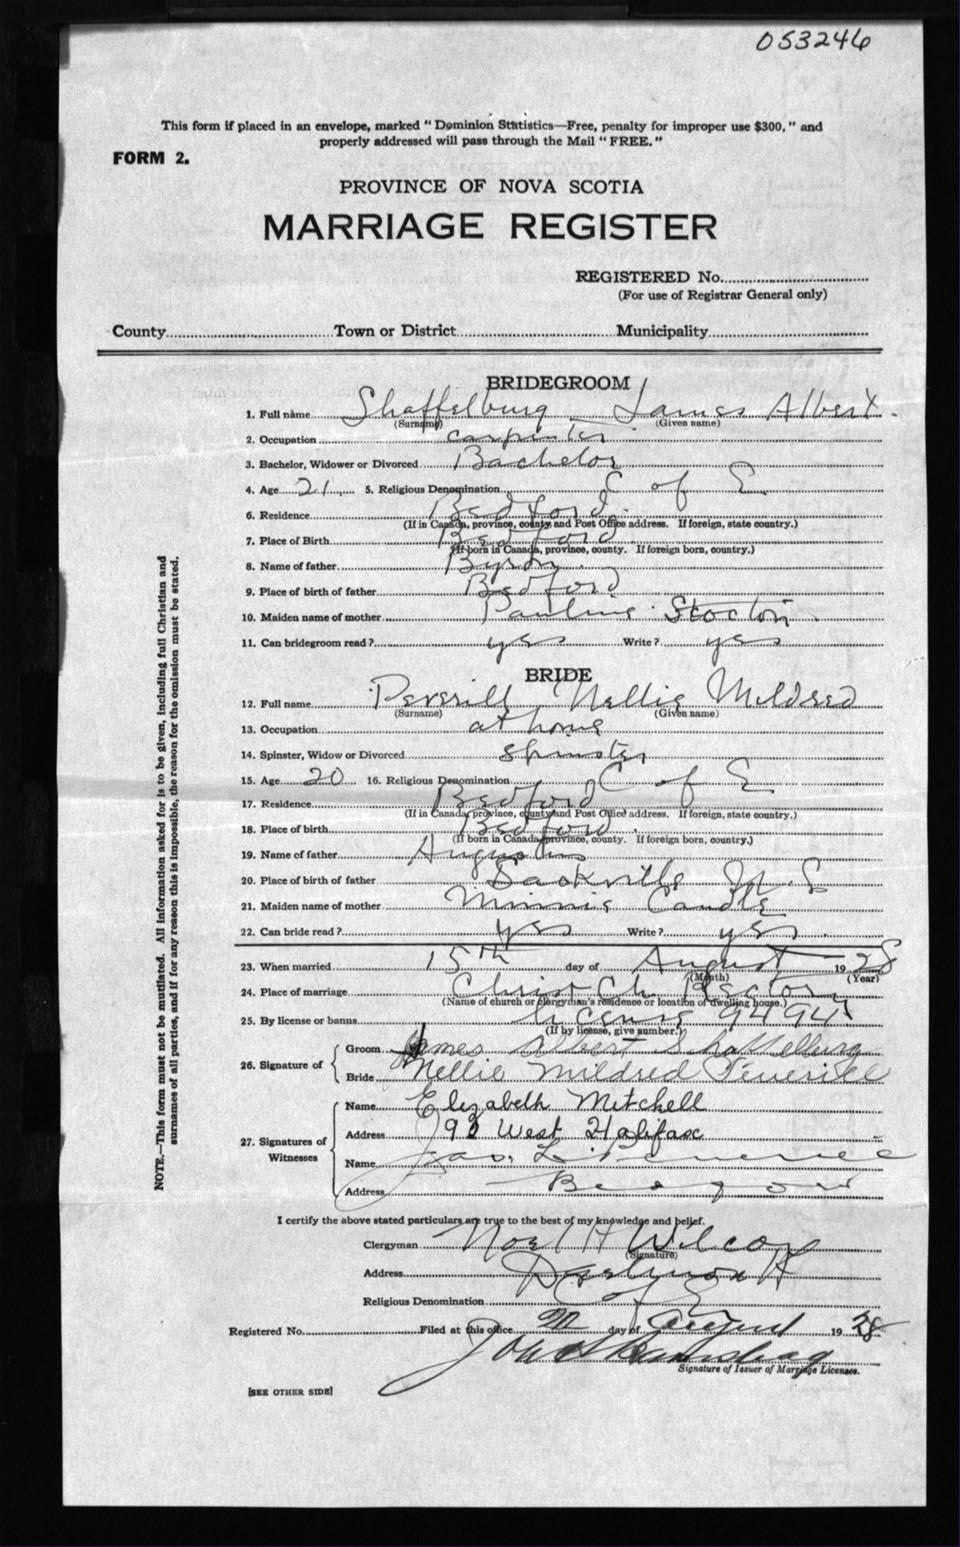 053246
This form if placed in an envelope, marked "Dominion Statistics—Free, penalty for improper use $300," and
properly addressed will pass through the Mail "FREE."
FORM 2.
PROVINCE OF NOVA SCOTIA
MARRIAGE REGISTER
REGISTERED No.
(For use of Registrar General only)
County Town or District Municipality
BRIDEGROOM
1. Full name Shaffelburg James Albert
(Surname) (Given name)
2. Occupation carpenter
3. Bachelor, Widower or Divorced Bachelor
4. Age 21 5. Religious Denomination C of E
6. Residence Bedford
(If in Canada, province, county and Post Office address. If foreign, state country.)
7. Place of Birth Bedford
(If born in Canada, province, county. If foreign born, country.)
8. Name of father Byron
9. Place of birth of father Bedford
10. Maiden name of mother Pauline Stocton
11. Can bridegroom read? yes Write? yes
BRIDE
12. Full name Peverill Nellie Mildred
(Surname) (Given name)
13. Occupation at home
14. Spinster, Widow or Divorced Spinster
15. Age 20 16. Religious Denomination C of E
17. Residence Bedford
(If in Canada, province, county and Post Office address. If foreign, state country.)
18. Place of birth Bedford
(If born in Canada, province, county. If foreign born, country.)
19. Name of father Augustus
20. Place of birth of father Sackville N. S
21. Maiden name of mother Minnie Caudle
22. Can bride read? yes Write? yes
23. When married 15th day of August 1928
(Month) (Year)
24. Place of marriage Christ Ch Rectory
(Name of church or clergyman's residence or location of dwelling house.)
25. By license or banns license 94945
(If by license, give number.)
26. Signature of
Groom James Albert Shaffelburg
Bride Nellie Mildred Peverill
27. Signatures of
Witnesses
Name Elizabeth Mitchell
Address West Halifax
Name Jas.
Address Bedford
I certify the above stated particulars are true to the best of my knowledge and belief.
Clergyman Noel H Wilcox
(Signature)
Address Dartmouth
Religious Denomination C of E
Registered No. Filed at this office 20 day of August 1928
Signature of Issuer of Marriage Licenses.
[SEE OTHER SIDE]
NOTE.—This form must not be mutilated. All information asked for is to be given, including full Christian and
surnames of all parties, and if for any reason this is impossible, the reason for the omission must be stated.